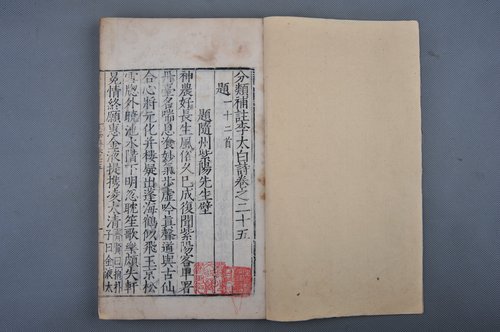 分類補註李太白詩卷之二十五
題 一十二首
題隨州紫陽先生壁
神農好長生風俗久已成復聞紫陽客早署
丹臺名喘息飡妙氣步虛吟眞聲道與古仙
合心將元化并樓疑出蓬海鶴似飛玉京松
雪牕外曉池水階下明忽躭笙歌樂頗失軒
冕情終願惠金液提攜凌太清齊賢曰抱朴
子曰金液太